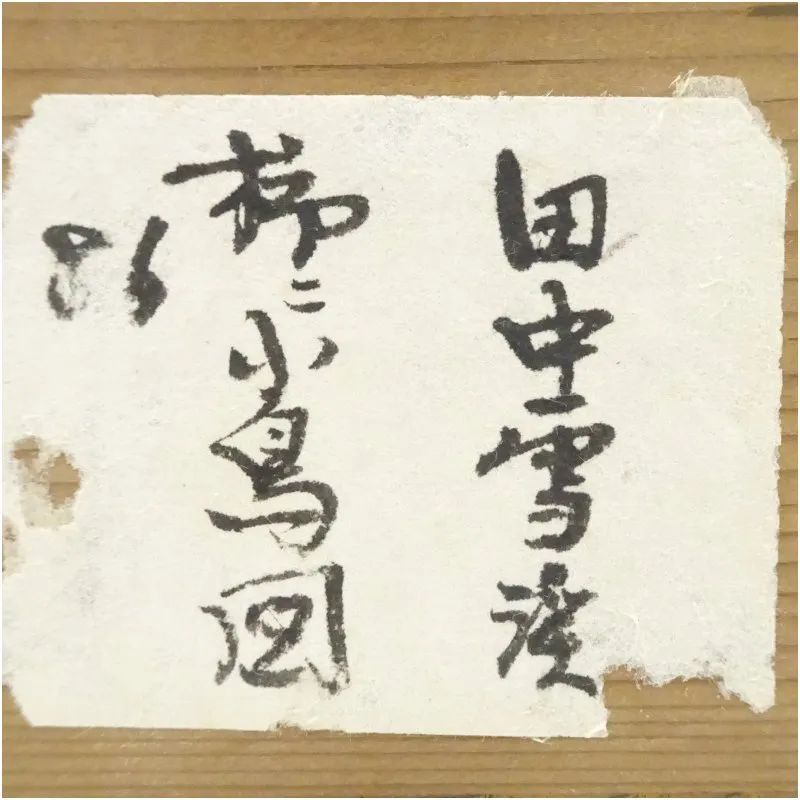 田中雪渓
ニ小鳥図
86